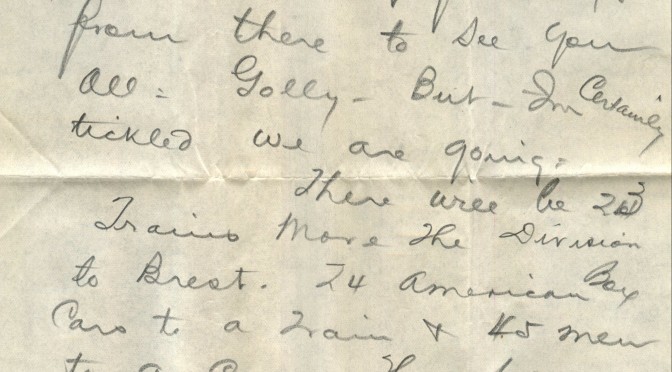 from there to see you
All = Golly - But - Im Certainly
tickled we are going.
There will be 23
Trains Move the Division
to Brest. 24 American Box
Cars to a train & 45 men
to a